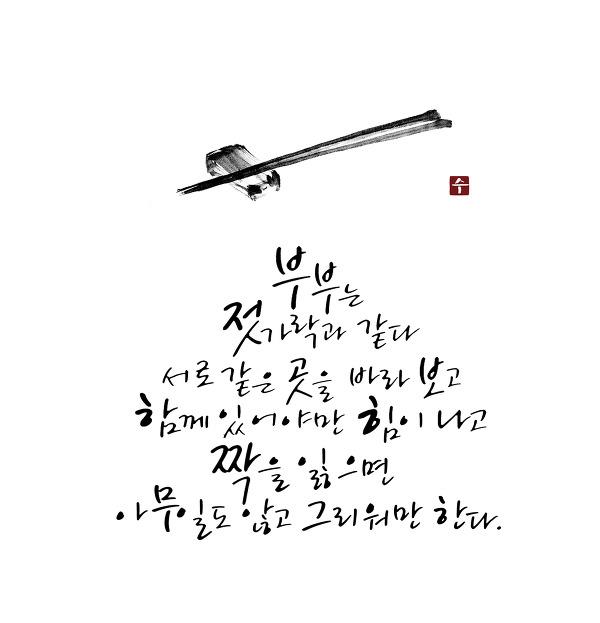 수
부부는
젓가락과 같다
서로 같은 곳을 바라 보고
함께 있어야만 힘이 나고
짝을 잃으면
아무일도 않고 그리워만 한다.